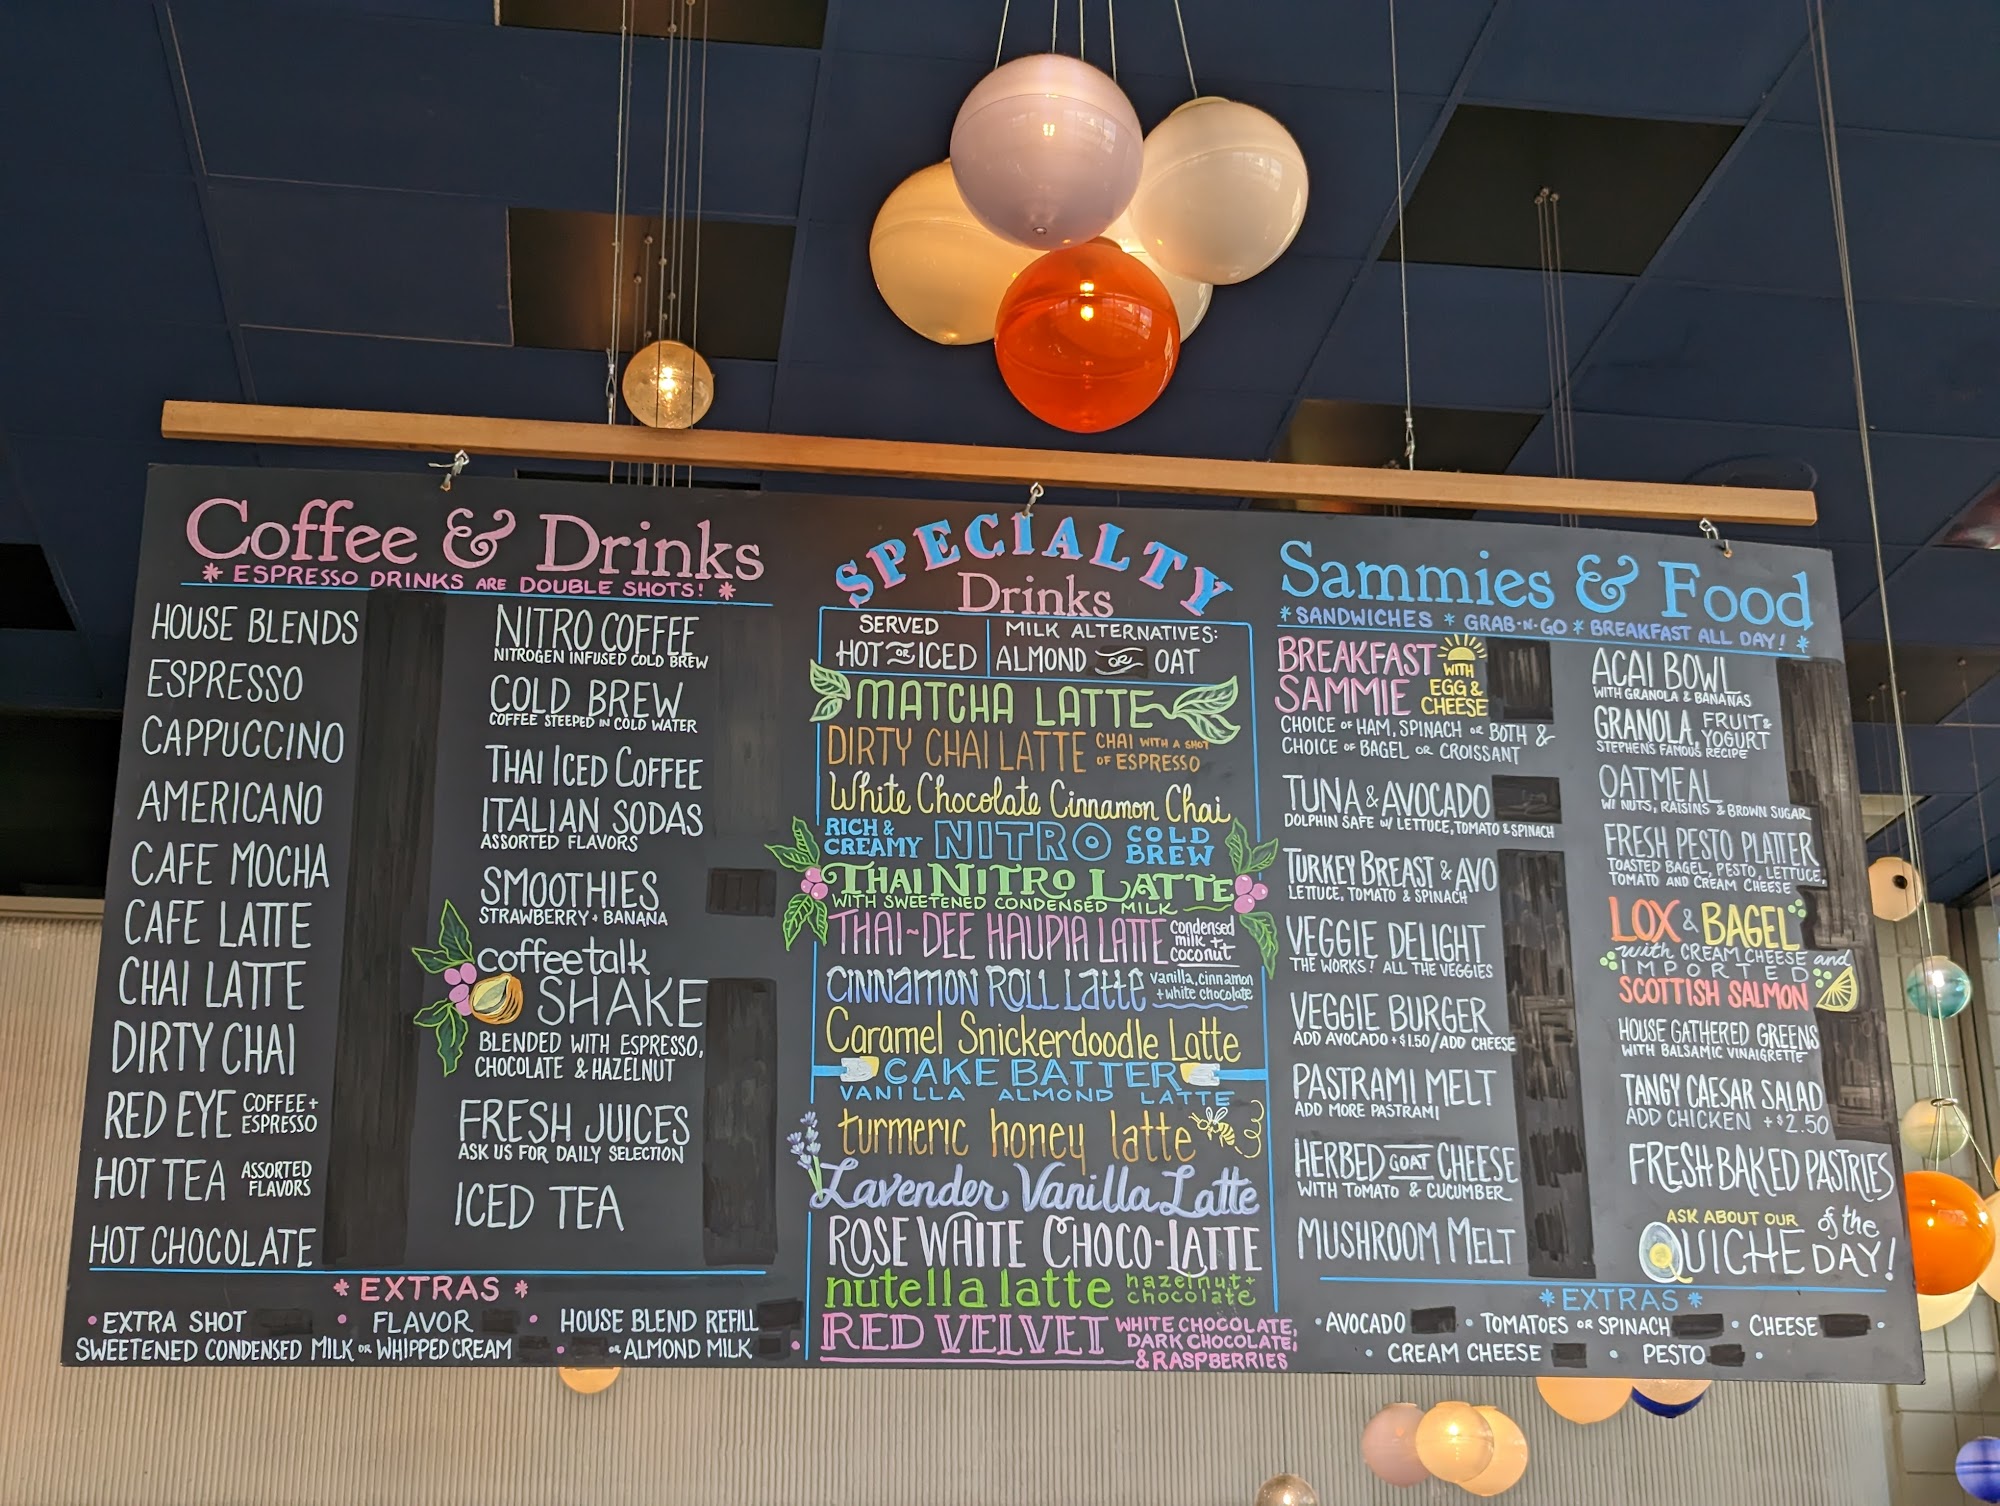 Coffee & Drinks
* ESPRESSO DRINKS ARE DOUBLE SHOTS! *
HOUSE BLENDS
ESPRESSO
CAPPUCCINO
AMERICANO
CAFE MOCHA
CAFE LATTE
CHAI LATTE
DIRTY CHAI
RED EYE COFFEE + ESPRESSO
HOT TEA ASSORTED FLAVORS
HOT CHOCOLATE
NITRO COFFEE
NITROGEN INFUSED COLD BREW
COLD BREW
COFFEE STEEPED IN COLD WATER
THAI ICED COFFEE
ITALIAN SODAS
ASSORTED FLAVORS
SMOOTHIES
STRAWBERRY + BANANA
coffeetalk
SHAKE
BLENDED WITH ESPRESSO,
CHOCOLATE & HAZELNUT
FRESH JUICES
ASK US FOR DAILY SELECTION
ICED TEA
* EXTRAS *
• EXTRA SHOT • FLAVOR • HOUSE BLEND REFILL
SWEETENED CONDENSED MILK OR WHIPPED CREAM • OR ALMOND MILK •
SPECIALTY
Drinks
SERVED
HOT OR ICED
MILK ALTERNATIVES:
ALMOND OR OAT
MATCHA LATTE
DIRTY CHAI LATTE CHAI WITH A SHOT OF ESPRESSO
White Chocolate Cinnamon Chai
RICH & CREAMY NITRO COLD BREW
THAI NITRO LATTE
WITH SWEETENED CONDENSED MILK
THAI-DEE HAUPIA LATTE condensed milk + coconut
CINNAMON ROLL Latte vanilla, cinnamon + white chocolate
Caramel Snickerdoodle Latte
CAKE BATTER
VANILLA ALMOND LATTE
turmeric honey latte
Lavender Vanilla Latte
ROSE WHITE CHOCO-LATTE
nutella latte hazelnut + chocolate
RED VELVET WHITE CHOCOLATE, DARK CHOCOLATE, & RASPBERRIES
Sammies & Food
* SANDWICHES * GRAB-N-GO * BREAKFAST ALL DAY! *
BREAKFAST
SAMMIE
WITH
EGG &
CHEESE
CHOICE OF HAM, SPINACH OR BOTH &
CHOICE OF BAGEL OR CROISSANT
TUNA & AVOCADO
DOLPHIN SAFE W/ LETTUCE, TOMATO & SPINACH
TURKEY BREAST & AVO
LETTUCE, TOMATO & SPINACH
VEGGIE DELIGHT
THE WORKS! ALL THE VEGGIES
VEGGIE BURGER
ADD AVOCADO + $1.50/ADD CHEESE
PASTRAMI MELT
ADD MORE PASTRAMI
HERBED GOAT CHEESE
WITH TOMATO & CUCUMBER
MUSHROOM MELT
ACAI BOWL
WITH GRANOLA & BANANAS
GRANOLA, FRUIT & YOGURT
STEPHENS FAMOUS RECIPE
OATMEAL
W/ NUTS, RAISINS & BROWN SUGAR
FRESH PESTO PLATTER
TOASTED BAGEL, PESTO, LETTUCE,
TOMATO AND CREAM CHEESE
LOX & BAGEL
with CREAM CHEESE and
IMPORTED
SCOTTISH SALMON
HOUSE GATHERED GREENS
WITH BALSAMIC VINAIGRETTE
TANGY CAESAR SALAD
ADD CHICKEN + $2.50
FRESH BAKED PASTRIES
ASK ABOUT OUR
QUICHE of the DAY!
* EXTRAS *
• AVOCADO • TOMATOES OR SPINACH • CHEESE •
• CREAM CHEESE • PESTO •